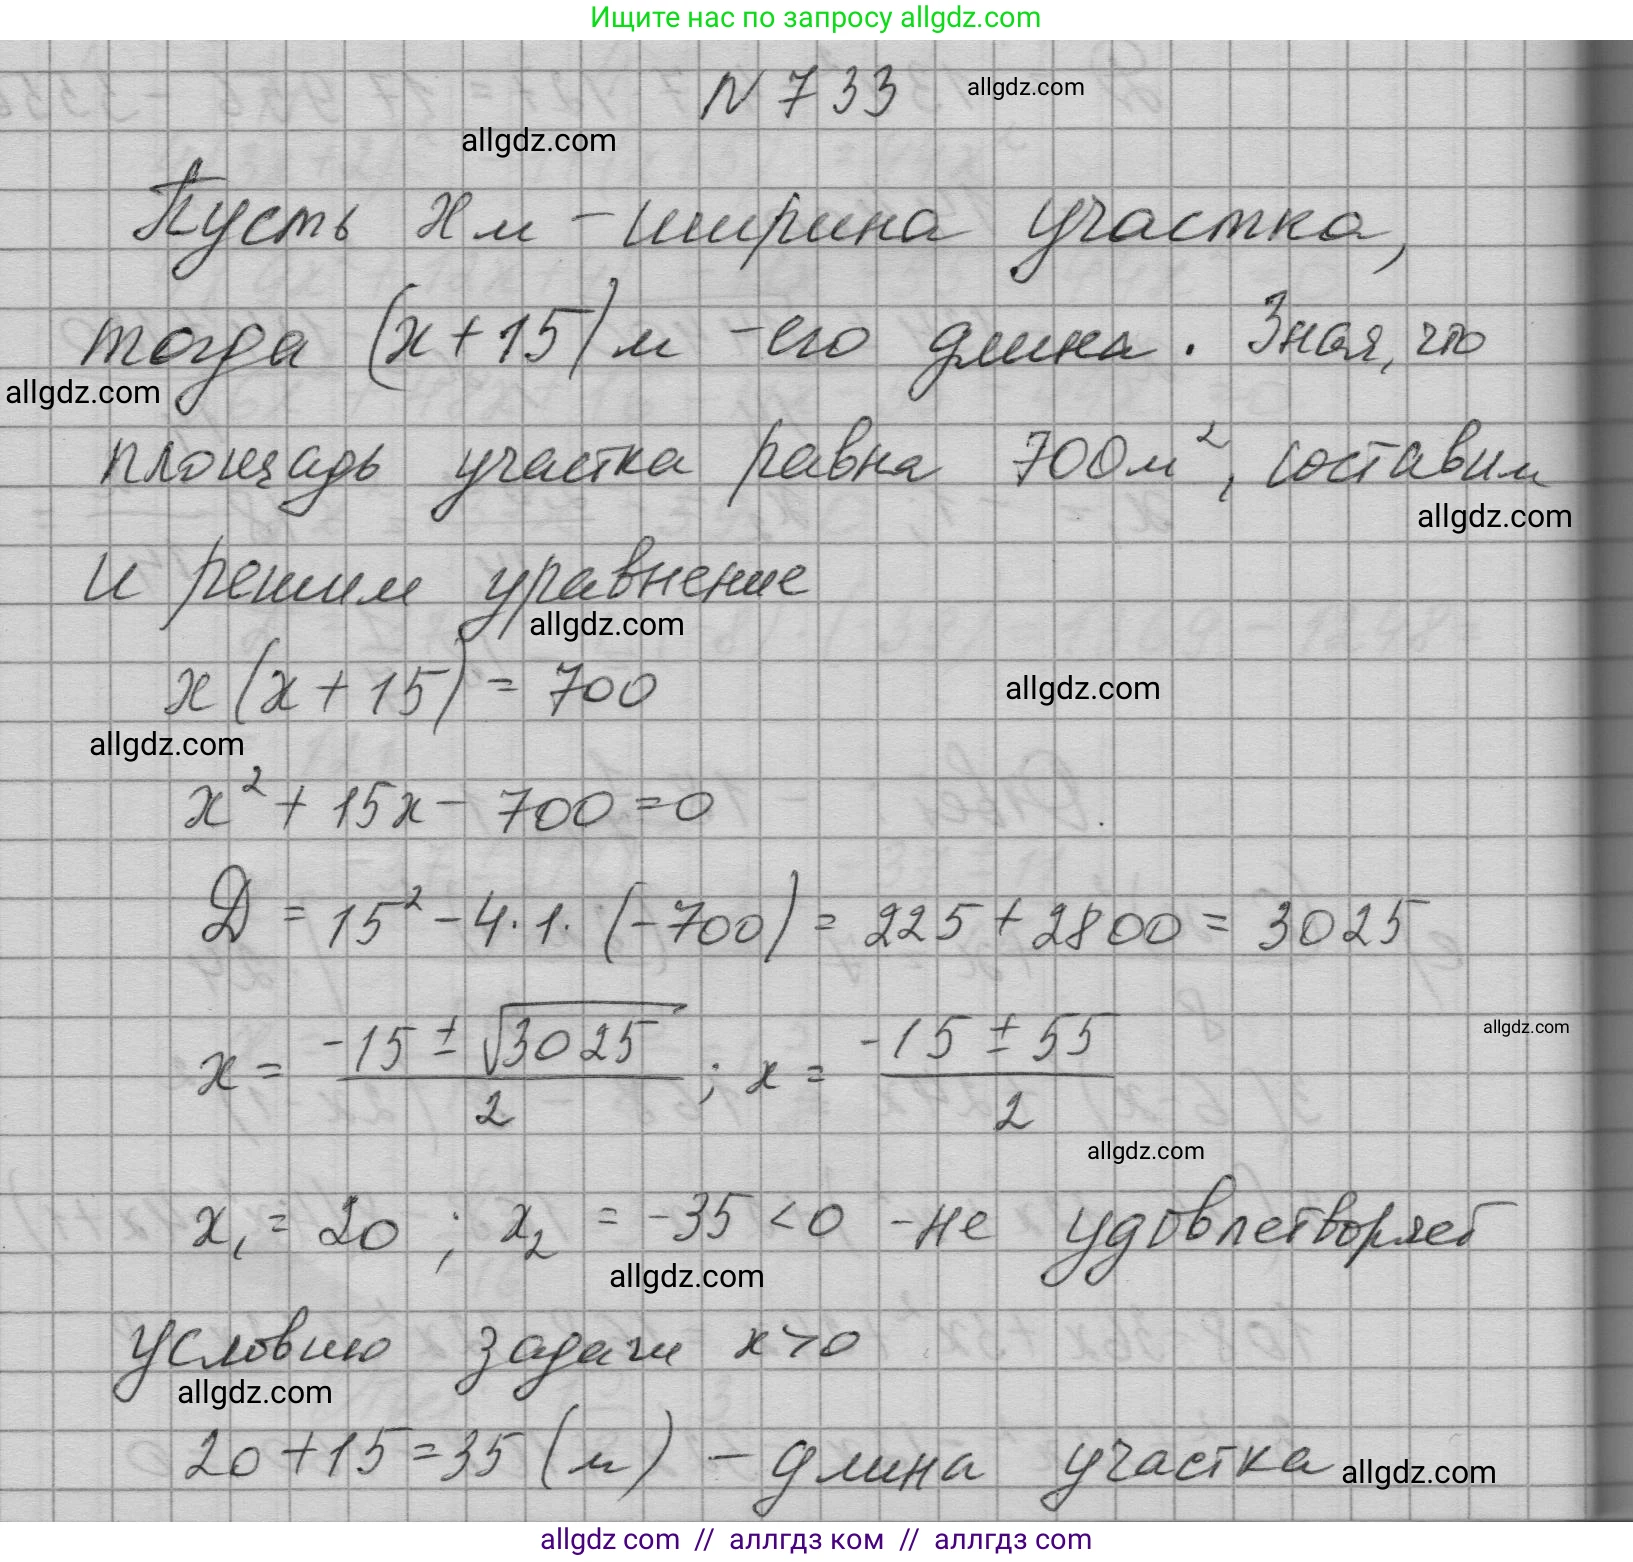 Ищите нас по запросу allgdz.com
N 733 allgdz.com
allgdz.com
Пусть x м - ширина участка,
тогда (x + 15) м - его длина. Зная, что
allgdz.com
площадь участка равна 700 м², составим
allgdz.com
и решим уравнение
allgdz.com
x (x + 15) = 700
allgdz.com
allgdz.com
x² + 15x - 700 = 0
D = 15² - 4 · 1 · (-700) = 225 + 2800 = 3025
x = (-15 ± √3025) / 2 ; x = (-15 ± 55) / 2
allgdz.com
allgdz.com
x₁ = 20 ; x₂ = -35 < 0 - не удовлетворяет
allgdz.com
условию задачи x > 0
allgdz.com
20 + 15 = 35 (м) - длина участка allgdz.com
allgdz.com // аллгдз ком // аллгдз.com